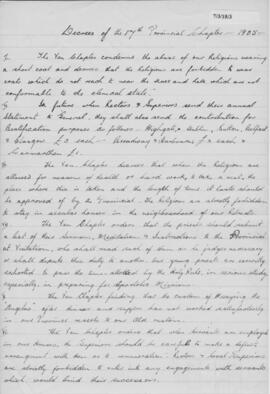 7/3/18/3
Decrees of the 17th Provincial Chapter - 1905 -
1. The Ven Chapter condemns the abuse of our Religious wearing
a short coat and decrees that the Religious are forbidden to wear
coats which do not reach to near the knees and hats which are not
conformable to the clerical state.
2. In future when Rectors & Superiors send their annual
Statement to General, they shall also send the contribution for
Beatification purposes as follows - Highgate, Dublin, Sutton, Belfast
& Glasgow £3 each - Broadway & £2 each &
Carmarthen £1.
3. The Ven Chapter decrees that when the Religious
are allowed for reasons of health or hard work, to take a rest, the
place where this is taken and the length of time it lasts should
be approved of by the Provincial. The Religious are strictly forbidden
to stay in secular houses in the neighbourhood of our Retreats.
4. The Ven Chapter orders that the priests should submit
a list of their Sermons, Meditations & Instructions to the Provincial
at Visitation, who shall read such of them as he judges necessary
or shall depute this duty to another. Our young priests are earnestly
exhorted to pass the time allotted by the Holy Rule, in serious study
especially, in preparing for Apostolic Missions.
5. The Ven Chapter finding that the custom of
"Angelus" after dinner and supper has not worked satisfactorily
in our Province reverts to our Old custom.
6. The Ven Chapter orders that when Servants are employed
in our Houses, the Superiors should be careful to make a definite
arrangement with them as to remuneration. Rectors & Local Superiors
are strictly forbidden to enter into any engagements with servants
which would bind their successors.